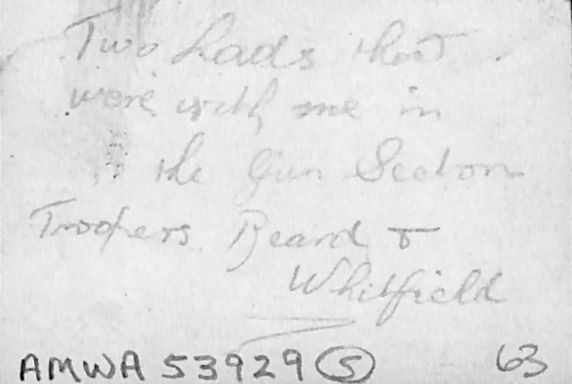 Two Lads that
were with me in
the Gun Section
Troopers Beard &
Whitfield
AMWA 53929 (5) 63